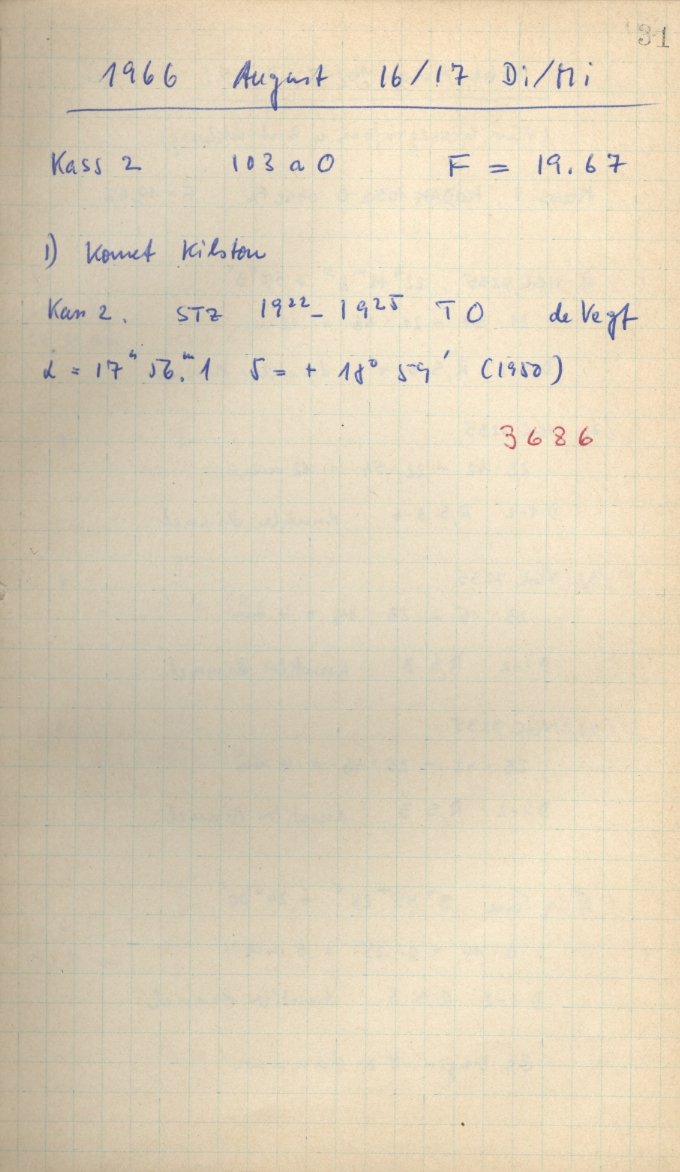 31
1966 August 16/17 Di/Mi
Kass 2 103 a O F = 19.67
1) Komet Kilston
Kass 2. STZ 19²²– 19²⁵ TO de Vegt
α = 17ʰ 56ᵐ.1 δ = + 18° 59′ (1950)
3686